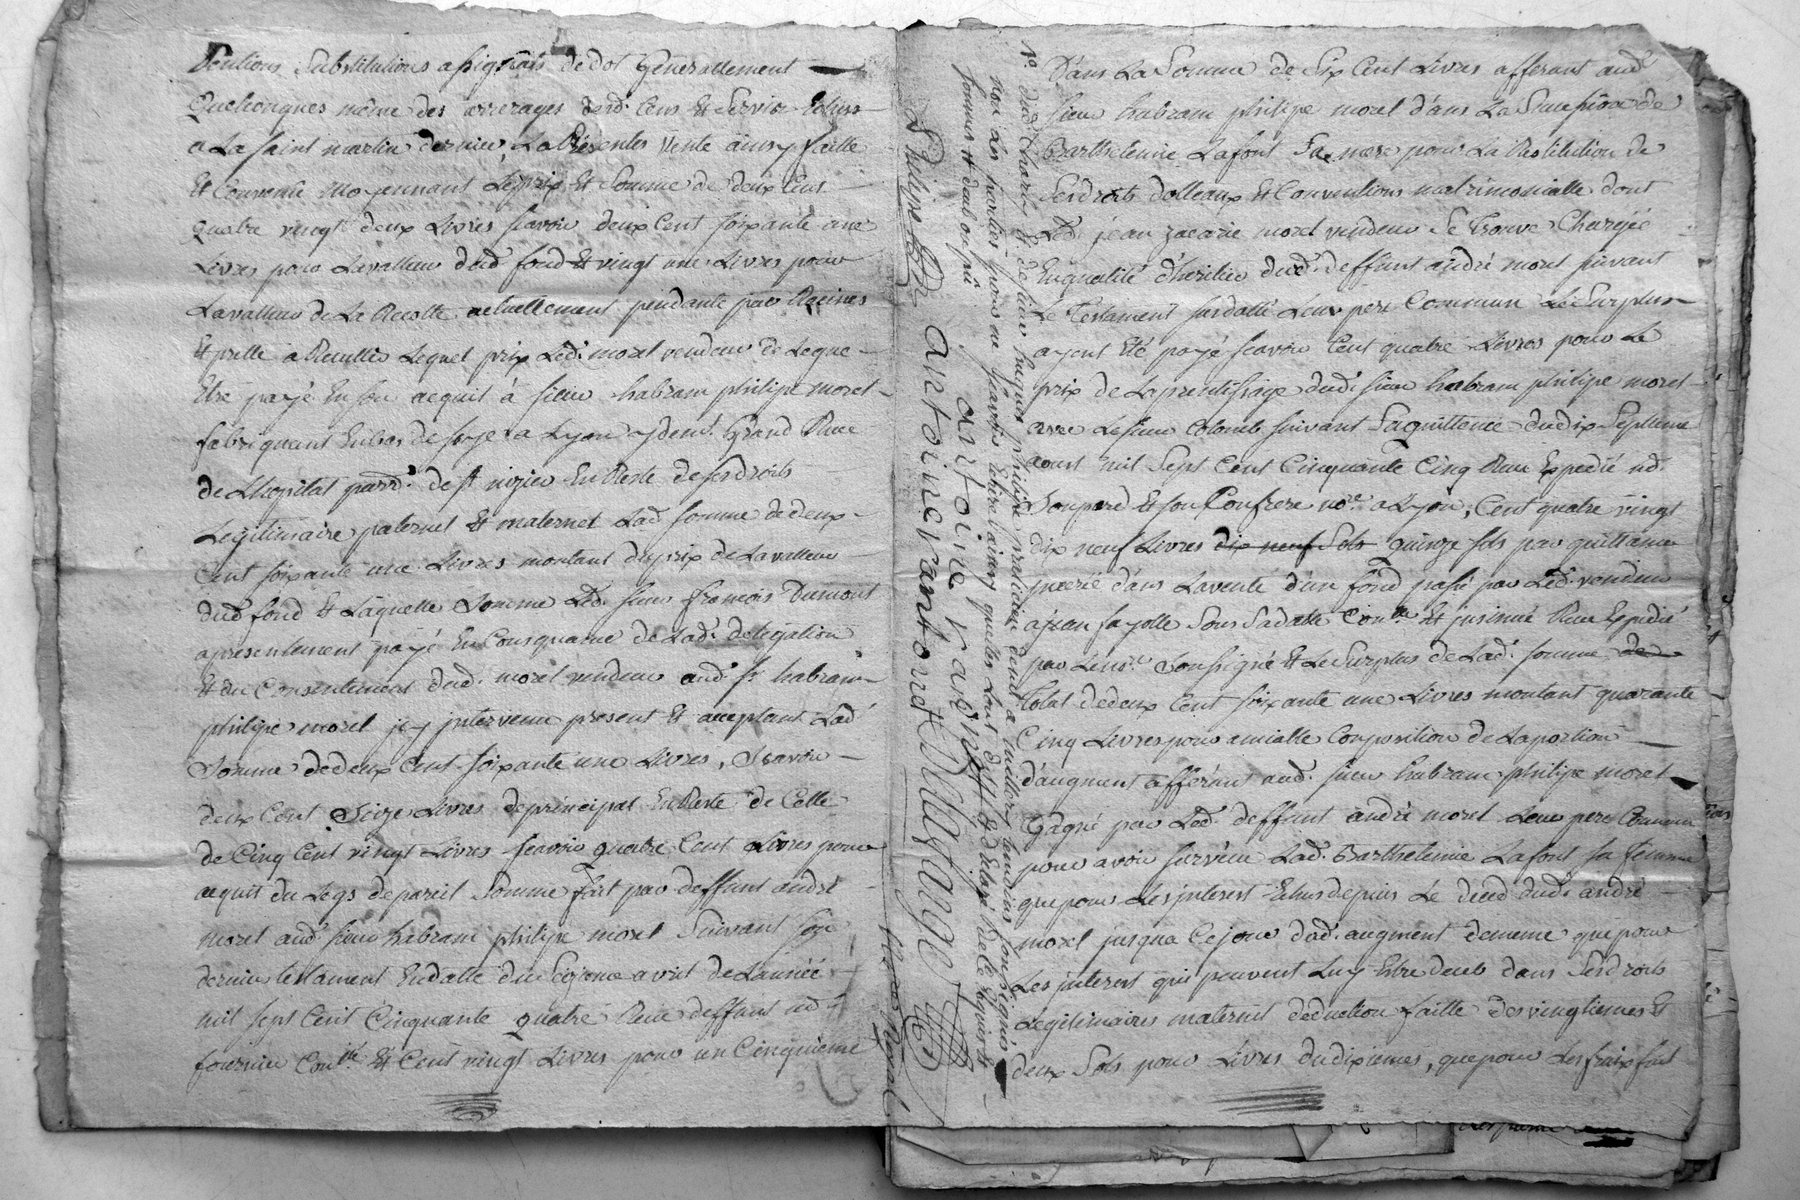 Substitutions assignats de dot Generallement
Quelconques même des arrerages desd. Cens Et Servis Echus
a La saint martin dernier, La Présente Vente ainsy faitte
Et Convenüe moyennant Le prix Et Somme de deux Cent
quatre vingt deux Livres scavoir deux Cent soixante une
Livres pour Lavalleur dud. fond Et vingt une Livres pour
Lavalleur de La Recolte actuellement pendante par Racines
Et prette a Recullir Lequel prix Led. morel vendeur delegue
Etre payé En son acquit à sieur habram philipe morel
fabriquant En bas de soye a Lyon y demt. Grand Rue
de Lhopital parr. de st nizier En Reste de ses droits
Legitimaire paternel Et maternel Lad. somme de deux
Cent soixante une Livres montant du prix de Lavalleur
dud fond Et Laquelle Somme Led. sieur francois Dumont
a presentement payé En Consequance de Lad. delegation
Et du Consentement dud. morel vendeur aud. sr. habram
philipe morel jcy jntervenu present Et acceptant Lad
Somme de deux Cent soixante une Livres, Scavoir
deux Cent Seize Livres de principal En Reste de Celle
de Cinq Cent vingt Livres scavoir quatre Cent Livres pour
acquit du Legs de pareil Somme fait par deffunt andré
morel aud. sieur habram philipe morel Suivant son
dernier testament En datte du avril de Lannée
mil sept Cent Cinquante quatre Receu deffunt nd
fournier Et Cent vingt Livres pour un Cinquieme
Philipe
antoine ravanetti
antoine
antoine
non Les parties pour ne scavoir Ecrire ainsy quelles Lont dit Et declaré de ce Enquis Et
sommés
dud. Charles Et de sieur Jacques philipe praticien demt. a soussignés
Dans La Somme de Six Cent Livres afferant aud.
sieur habram philipe morel dans La Succession de
Barthelemie Lafont Sa mere pour La Restitution de
Ses droits dotteaux Et Conventions matrimonialle dont
Led. jean zacarie morel vendeur Se Trouve Chargée
En qualité d'heritier dud. deffunt andré morel suivant
Le Testament susdatté Leur pere Commun Le Surplus
ayent Eté payé scavoir Cent quatre Livres pour Le
prix de Laprentissage dud. sieur habram philipe morel
avec Le sieur Colomb suivant Saquittance du dix Septieme
aoust mil Sept Cent Cinquante Cinq Receu Expedié nd.
Soupard Et son Confrere nore a Lyon, Cent quatre vingt
dix neuf Livres dix neuf Sols quinze sols par quittance
jnserée dans La vente d'un fond passé par Led. vendeur
à jean fayolle Sous Sa datte Et jnsinué Receu Expedié
par Le nore. Soussigné Et Le Surplus de Lad. somme de
Total de deux Cent soixante une Livres montant quarante
Cinq Livres pour amialle Composition de Laportion
daugment afferant aud. sieur habram philipe morel
Gagné par Led. deffunt andré morel Leur pere Commun
pour avoir survécu Lad. Barthelemie Lafont sa femme
que pour Les jnterest Echus depuis Le deced dud. andré
morel jusqua Ce jour dud. augment dememe que pour
Les jnterest qui peuvent Luy Etre deub dans Ses droits
Legitimaires maternel deduction faitte des vingtiemes Et
deux Sols pour Livres du dixiemes, que pour Les fraix fait